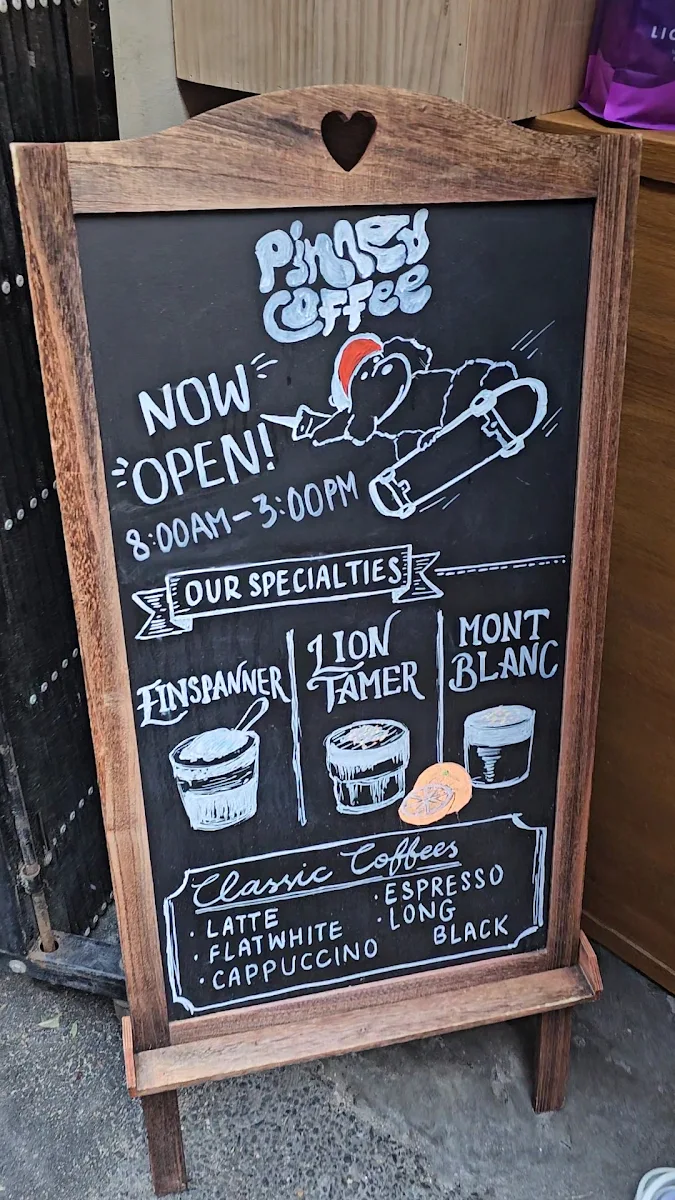 Pinned
Coffee
NOW
OPEN!
8:00AM-3:00PM
OUR SPECIALTIES
EINSPANNER
LION
TAMER
MONT
BLANC
Classic Coffees
· LATTE
· FLATWHITE
· CAPPUCCINO
· ESPRESSO
· LONG
BLACK